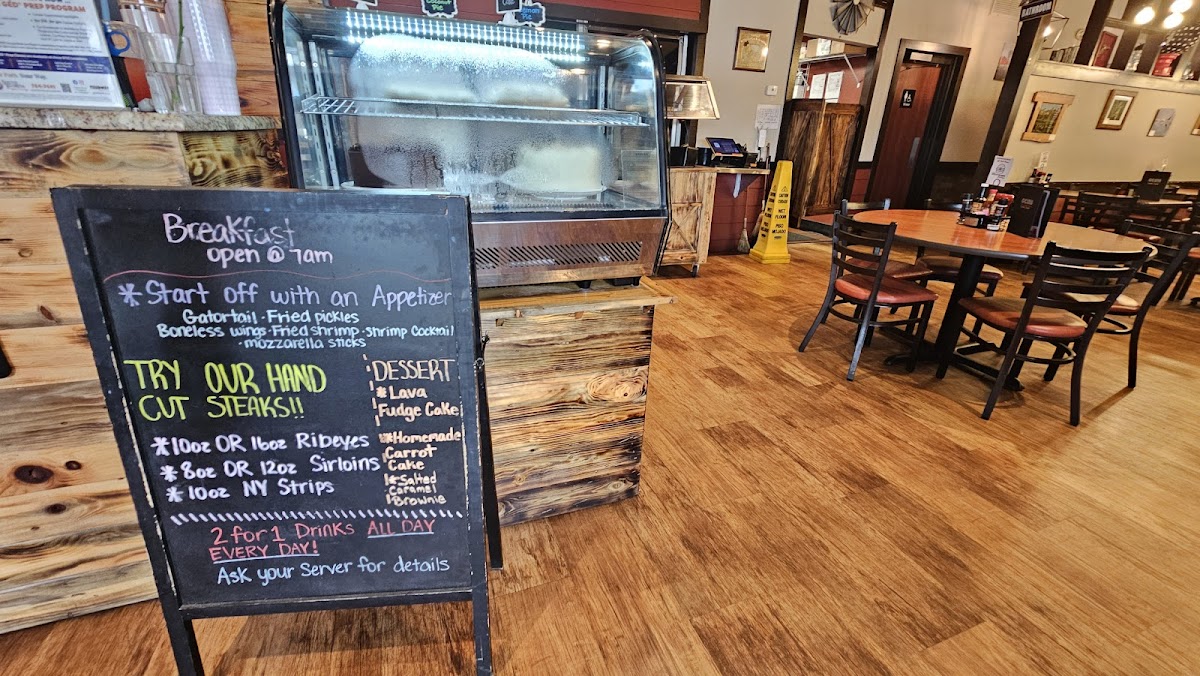 GED® PREP PROGRAM
Pie
Pie
BATHROOM
Breakfast
open @ 7am
* Start off with an Appetizer
Gatortail · Fried pickles
Boneless wings · Fried shrimp · shrimp Cocktail
· mozzarella sticks
TRY OUR HAND
CUT STEAKS!!
* 10oz OR 16oz Ribeyes
* 8oz OR 12oz Sirloins
* 10oz NY Strips
DESSERT
* Lava
Fudge Cake
* Homemade
Carrot
Cake
* Salted
Caramel
Brownie
2 for 1 Drinks ALL DAY
EVERY DAY!
Ask your Server for details